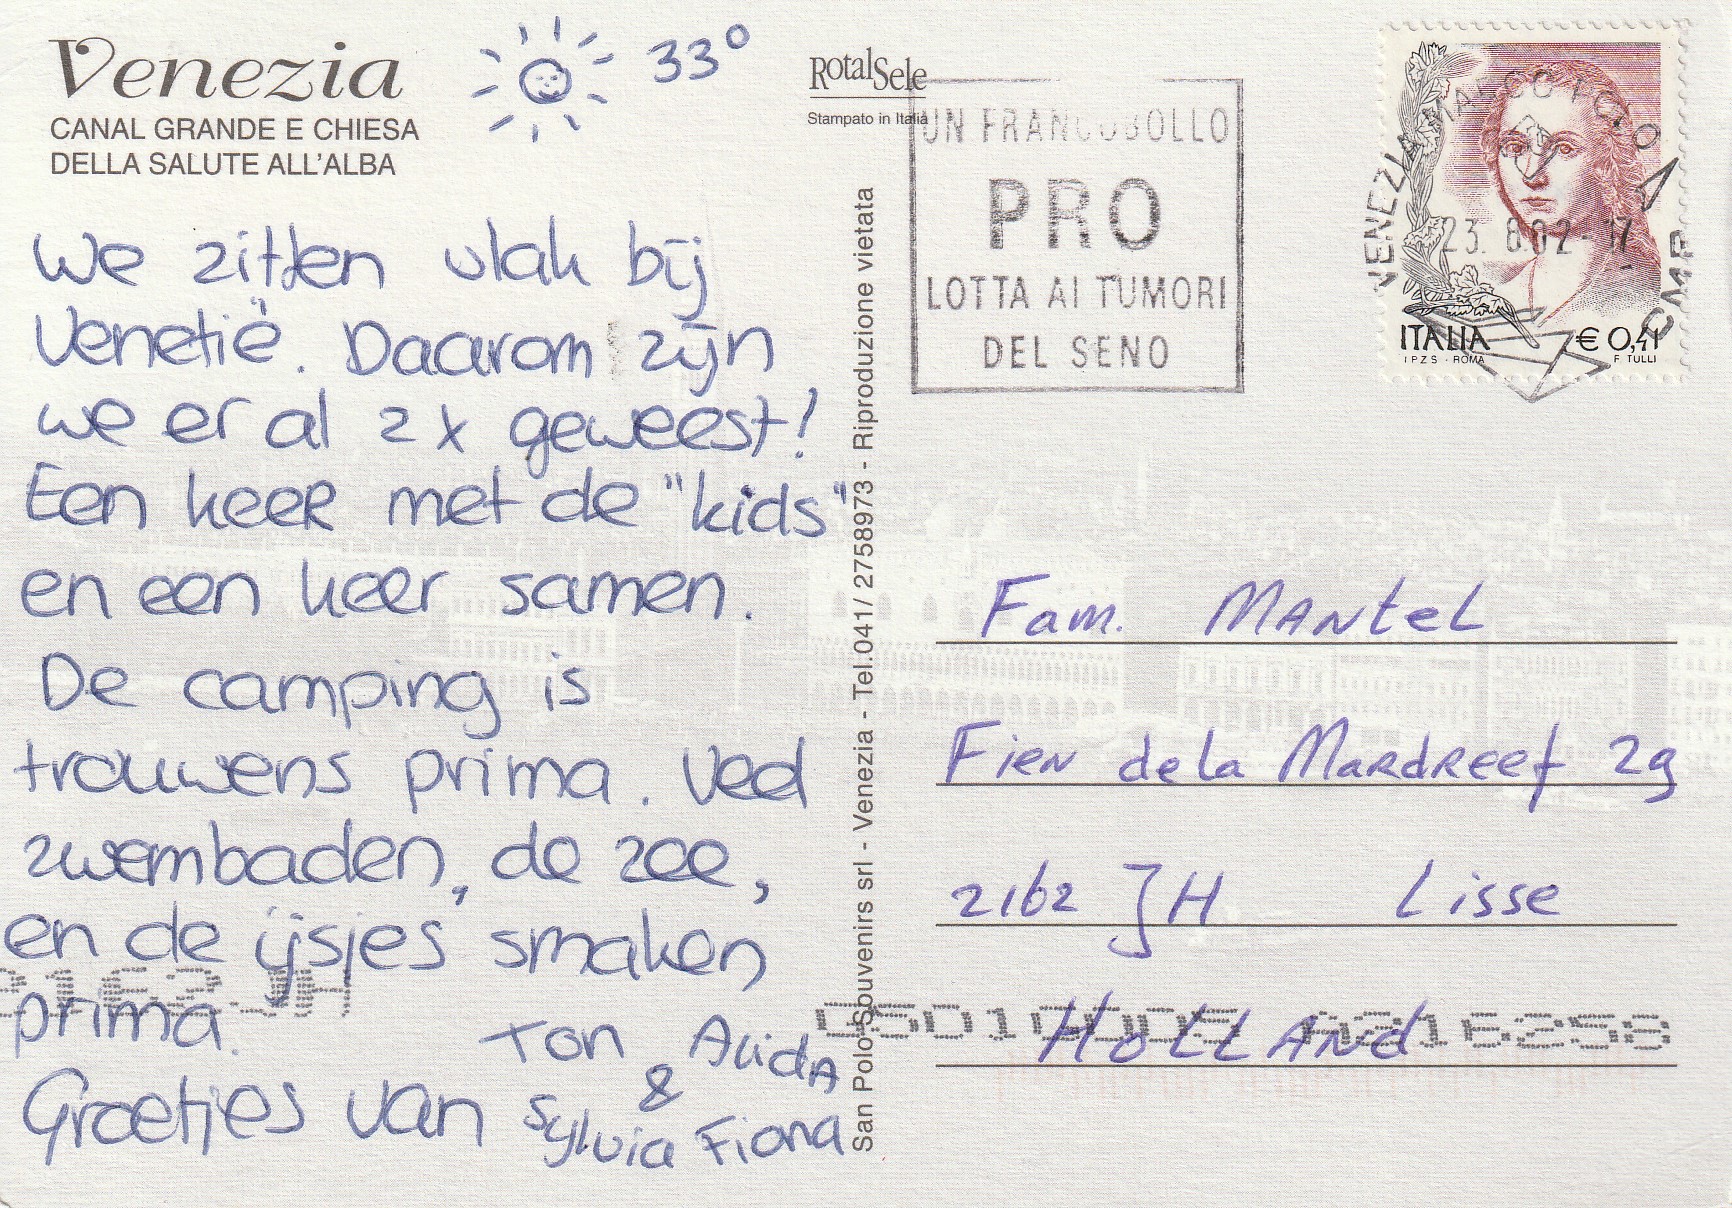 Venezia
CANAL GRANDE E CHIESA
DELLA SALUTE ALL'ALBA
33°
We zitten vlak bij
Venetië. Daarom zijn
we er al 2 x geweest!
Een keer met de "kids"
en een keer samen.
De camping is
trouwens prima. Veel
zwembaden, de zee,
en de ijsjes smaken
prima.
Groetjes van
Ton Alida
&
Sylvia Fiona
RotalSele
Stampato in Italia
San Polo Souvenirs srl - Venezia - Tel.041/ 2758973 - Riproduzione vietata
UN FRANCOBOLLO
PRO
LOTTA AI TUMORI
DEL SENO
VENEZIA MARCO POLO
CMP
23. 8.02-17
ITALIA € 0,41
I P Z S - ROMA F. TULLI
Fam. MANteL
Fien de la MaRdReef 29
2162 JH Lisse
HOLLANd
2162JH